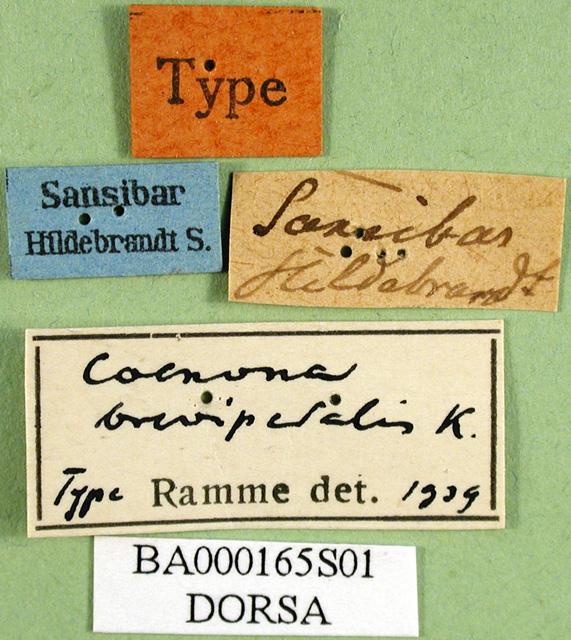 Type
Sansibar
Hildebrandt S.
Sansibar
Hildebrandt
Coenona
brevipedalis K.
Type Ramme det. 1939
BA000165S01
DORSA